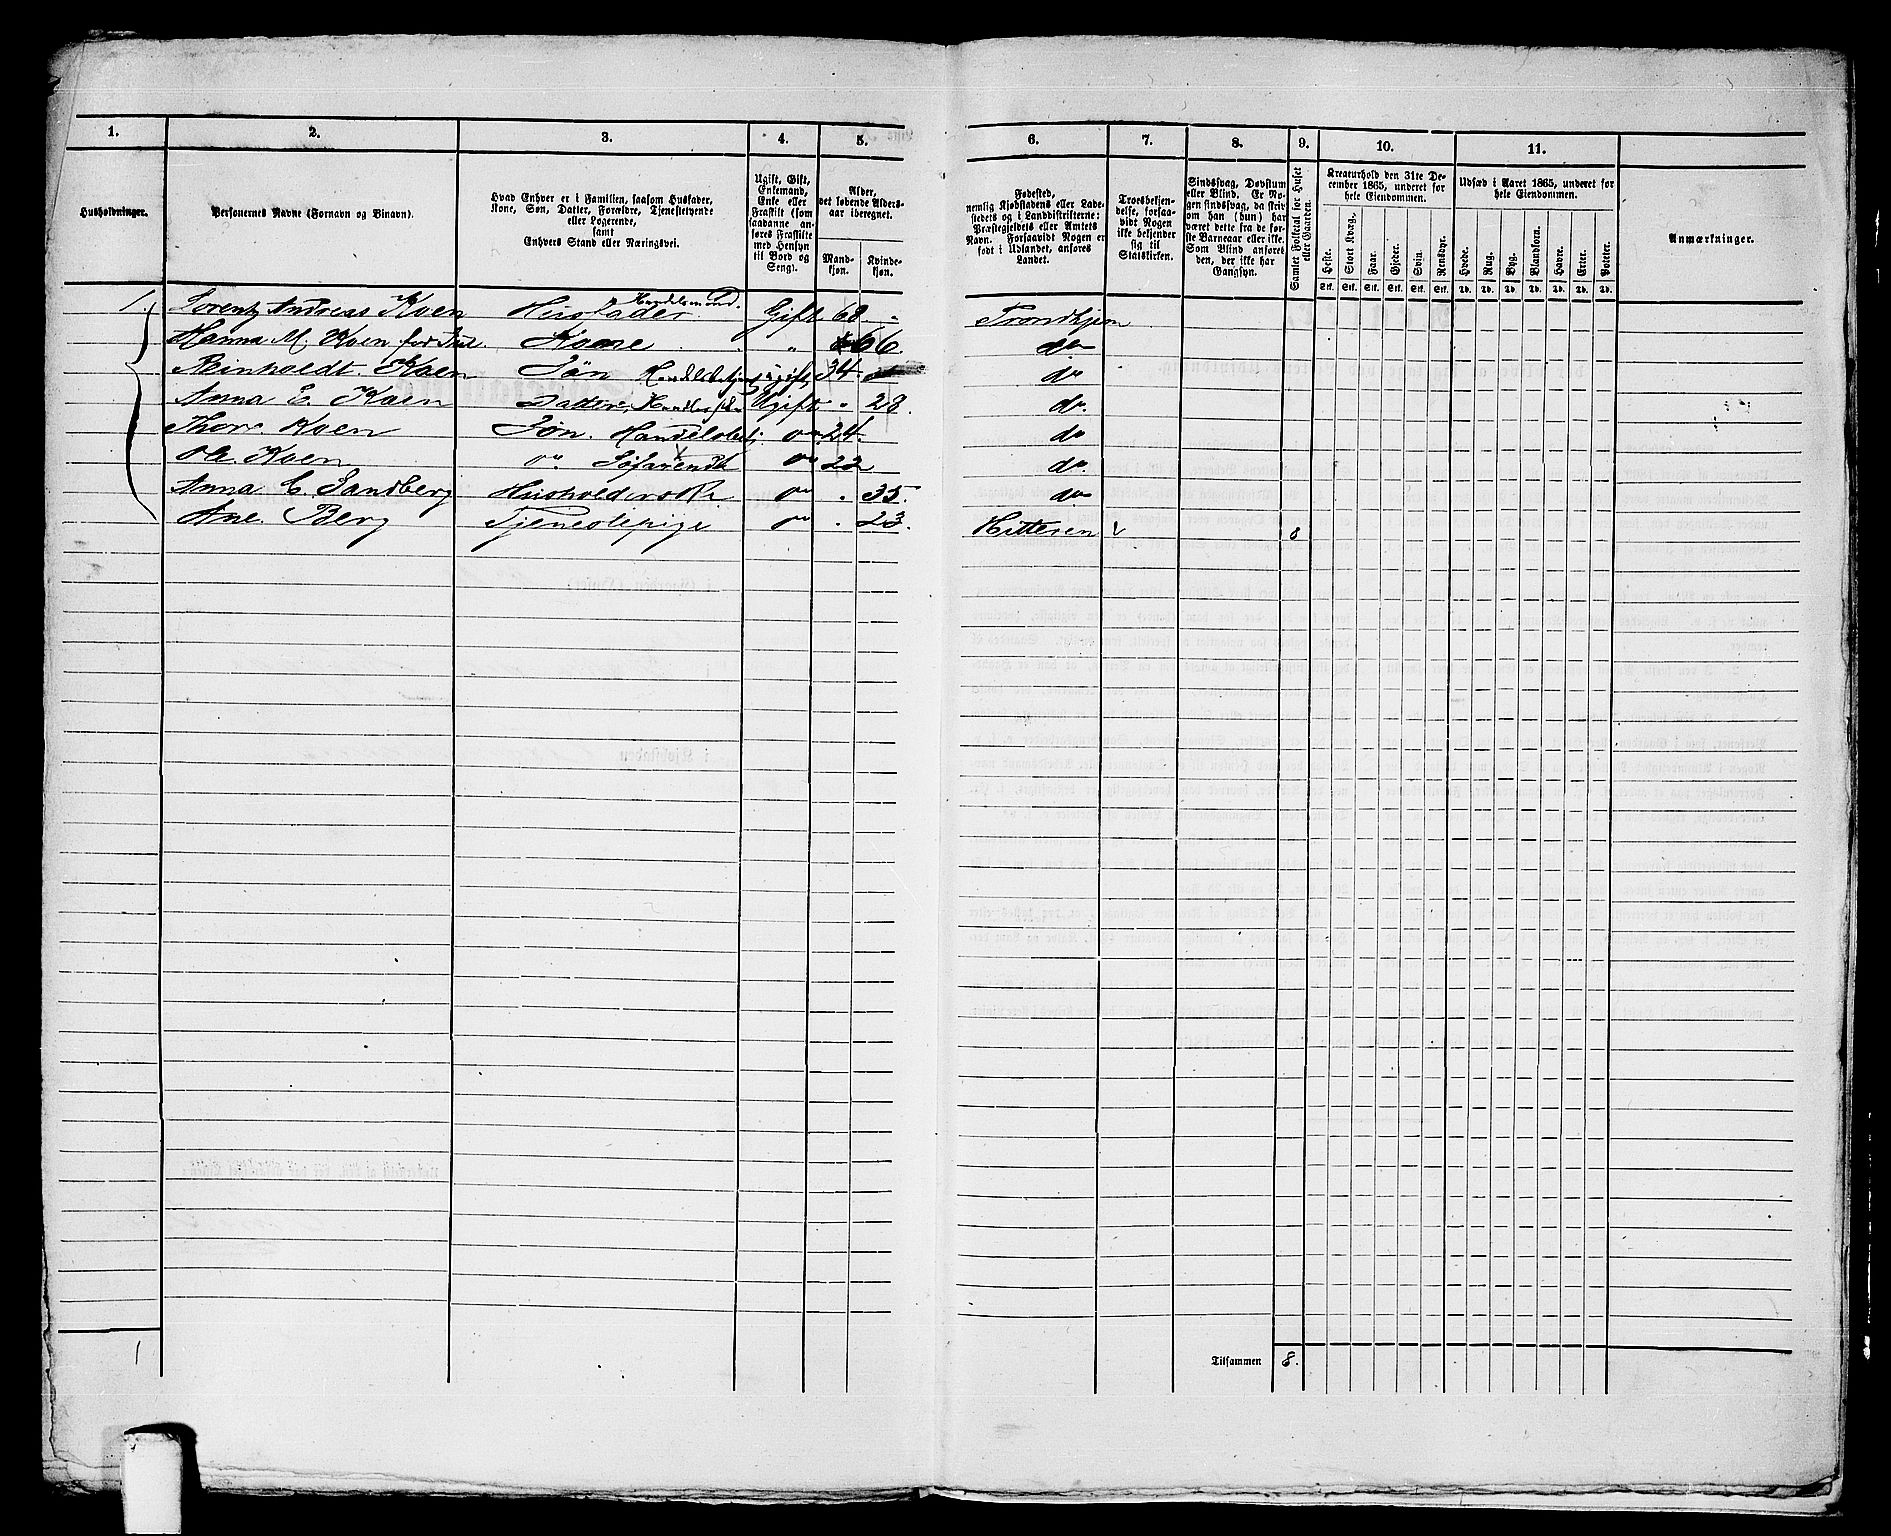 1. 2. 3. 4. 5. 6. 7. 8. 9. 10. 11.
Husholdninger.
Personernes Navne (Fornavn og Binavn).
Hvad Enhver er i Familien, saasom Husfader,
Kone, Søn, Datter, Forældre, Tjenestetyende
eller Logerende,
samt
Enhvers Stand eller Næringsvei.
Ugift, Gift,
Enkemand,
Enke eller
Fraskilt (som
saadanne an-
føres Fraskilte
med Hensyn
til Bord og
Seng).
Alder,
det løbende Alders-
aar iberegnet.
Mand-
kjøn.
Kvinde-
kjøn.
Fødested,
nemlig Kjøbstadens eller Lade-
stedets og i Landdistrikterne:
Præstegjeldets eller Amtets
Navn. Forsaavidt Nogen er
født i Udlandet, anføres
Landet.
Troesbekjen-
delse, forsaa-
vidt Nogen
ikke bekjender
sig til
Statskirken.
Sindssvag, Døvstum
eller Blind. Er No-
gen sindssvag, da skriv
om han (hun) har
været dette fra de før-
ste Barneaar eller ikke.
Som Blind anføres
den, der ikke har
Gangsyn.
Samlet Folketal for Huset
eller Gaarden.
Kreaturhold den 31te De-
cember 1865, underet for
hele Eiendommen.
Heste. Stort Kvæg. Faar. Gjeder. Svin. Rensdyr.
Stk. Stk. Stk. Stk. Stk. Stk.
Udsæd i Aaret 1865, underet for
hele Eiendommen.
Hvede. Rug. Byg. Blandkorn. Havre. Erter. Poteter.
Td. Td. Td. Td. Td. Td. Td.
Anmærkninger.
1. Lorentz Andreas Koen Husfader. Handelsmand. Gift 68 " Trondhjem
Hanna M. Koen Kone " 66. do
Reinholdt Koen Søn Ugift 34 do
Anna E. Koen Datter, Ugift " 28. do.
Thorv. Koen Søn. do 24. do
Ole. Koen do Søfarende do 22 do.
Anna C. Sandberg Husholderske do " 35. do
Ane. Berg Tjenestepige do " 23. Hitteren 8
1
Tilsammen 8.